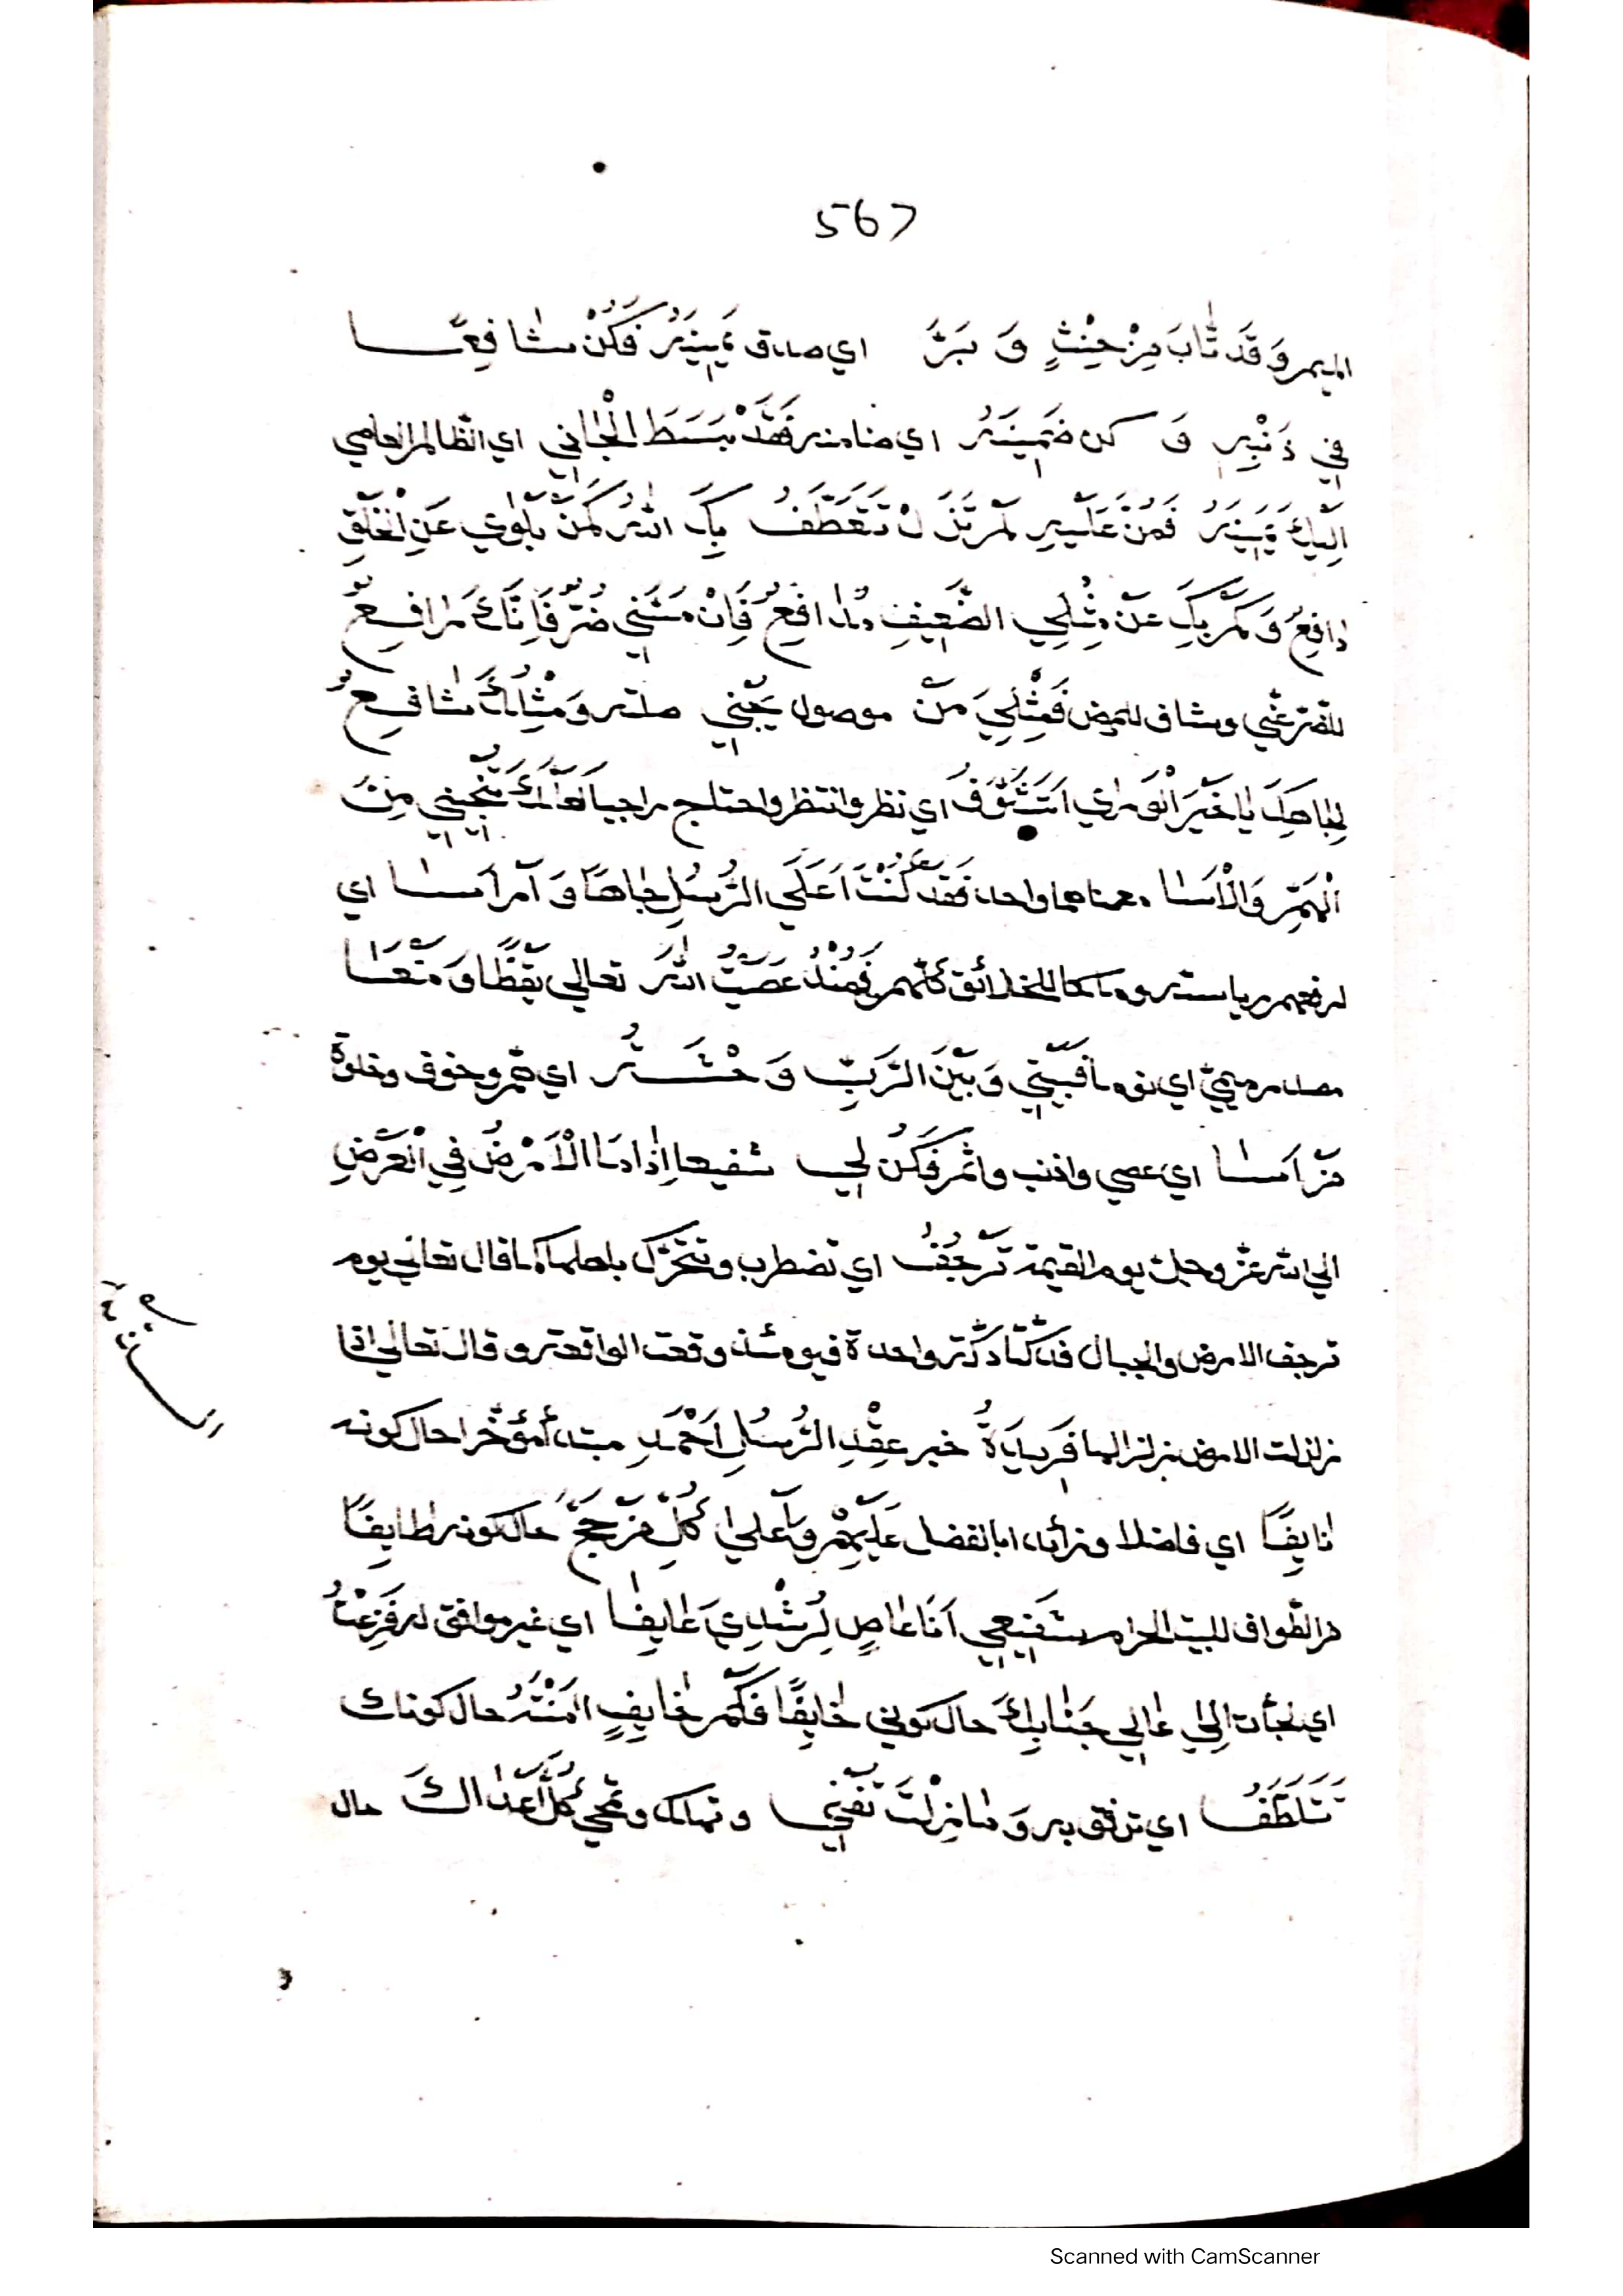 567
اليمر وَقَدْ تَابَ مِنْ حِنْثٍ وَ بَرَّ اي صدق يَمِينَهُ فَكُنْ شَافِعًا
فِي ذَنْبِهِ وَ كن ضَمِينَهُ اي ضامنه فَقَدْ بَسَطَ الْجَانِي اي الظالم العاصي
اِلَيْكَ يَمِينَهُ فَمُنَّ عَلَيْهِ لَمْ تَزَلْ تَتَعَطَّفُ بِكَ اللهُ كَمْ مِنْ بَلْوٰي عَنِ الْخَلْقِ
دَافِعُ وَكَمْ بِكَ عَنْ مِثْلِي الضَّعِيفِ مُدَافِعُ فَاِنْ مَسَّنِي ضُرٌّ فَاِنَّكَ رَافِعُ
للضر عني وشاف للمرض فَمِثْلِيَ مَنْ موصول يَجْنِي صلته وَمِثْلُكَ شَافِعُ
لِجَاهِكَ يَا خَيْرَ الْوَرٰي اَتَشَوَّفُ اي نظر وانتظر واحتاج راجيا لَعَلَّكَ تُنْجِينِي مِنَ
الْهَمِّ وَالْاَسَا معناهما واحد فَقَدْ كُنْتَ اَعْلَي الرُّسُلِ جَاهًا وَ اَرْاَسَا اي
ارفعهم رياسة وملكا للخلائق كلهم فَمُنْذُ عَصَيْتُ اللهَ تعالي يَقْظًا وَ مَنْعَسَا
مصدر ميمي اي نوما فَبَيْنِي وَبَيْنَ الرَّبِّ وَحْشَةُ اي هم وخوف وخلوة
مَنْ اَسَا اي عصي واذنب واثم فَكُنْ لِي شفيعا اِذَا مَا الْاَرْضُ فِي الْعَرْضِ
الي الله عز وجل يوم القيمة تَرْجُفُ اي تضطرب وتتحرك باهلها كما قال تعالي يوم
ترجف الارض والجبال فدكتا دكة واحدة فيومئذ وقعت الواقعة وقال تعالي اذا
زلزلت الارض زلزالها فَرِيدَةُ خبر عِقْدِ الرُّسُلِ اَحْمَدِ مبتدأ مؤخر حال كونه
نَايِفًا اي فاضلا وزائدا بالفضل عَلَيْهِمْ وَاَعْلٰي كُلِّ مَنْ حَجَّ حال كونه طَايِفًا
من الطواف للبيت الحرام شَفِيعِي اَنَا عَاصٍ لِرُشْدِيَ عَايِفًا اي غير موافق له فَزِعْتُ
اي لجأت اِلٰي عَالِي جَنَابِكَ حال كوني خَايِفًا فَكَمْ خَايِفٍ اَمَّنْتَهُ حال كونك
تَتَلَطَّفُ اي ترفق به وَ مَا زِلْتَ تُفْنِي و تهلك و تمحي كُلَّ اَعْدَاكَ حال